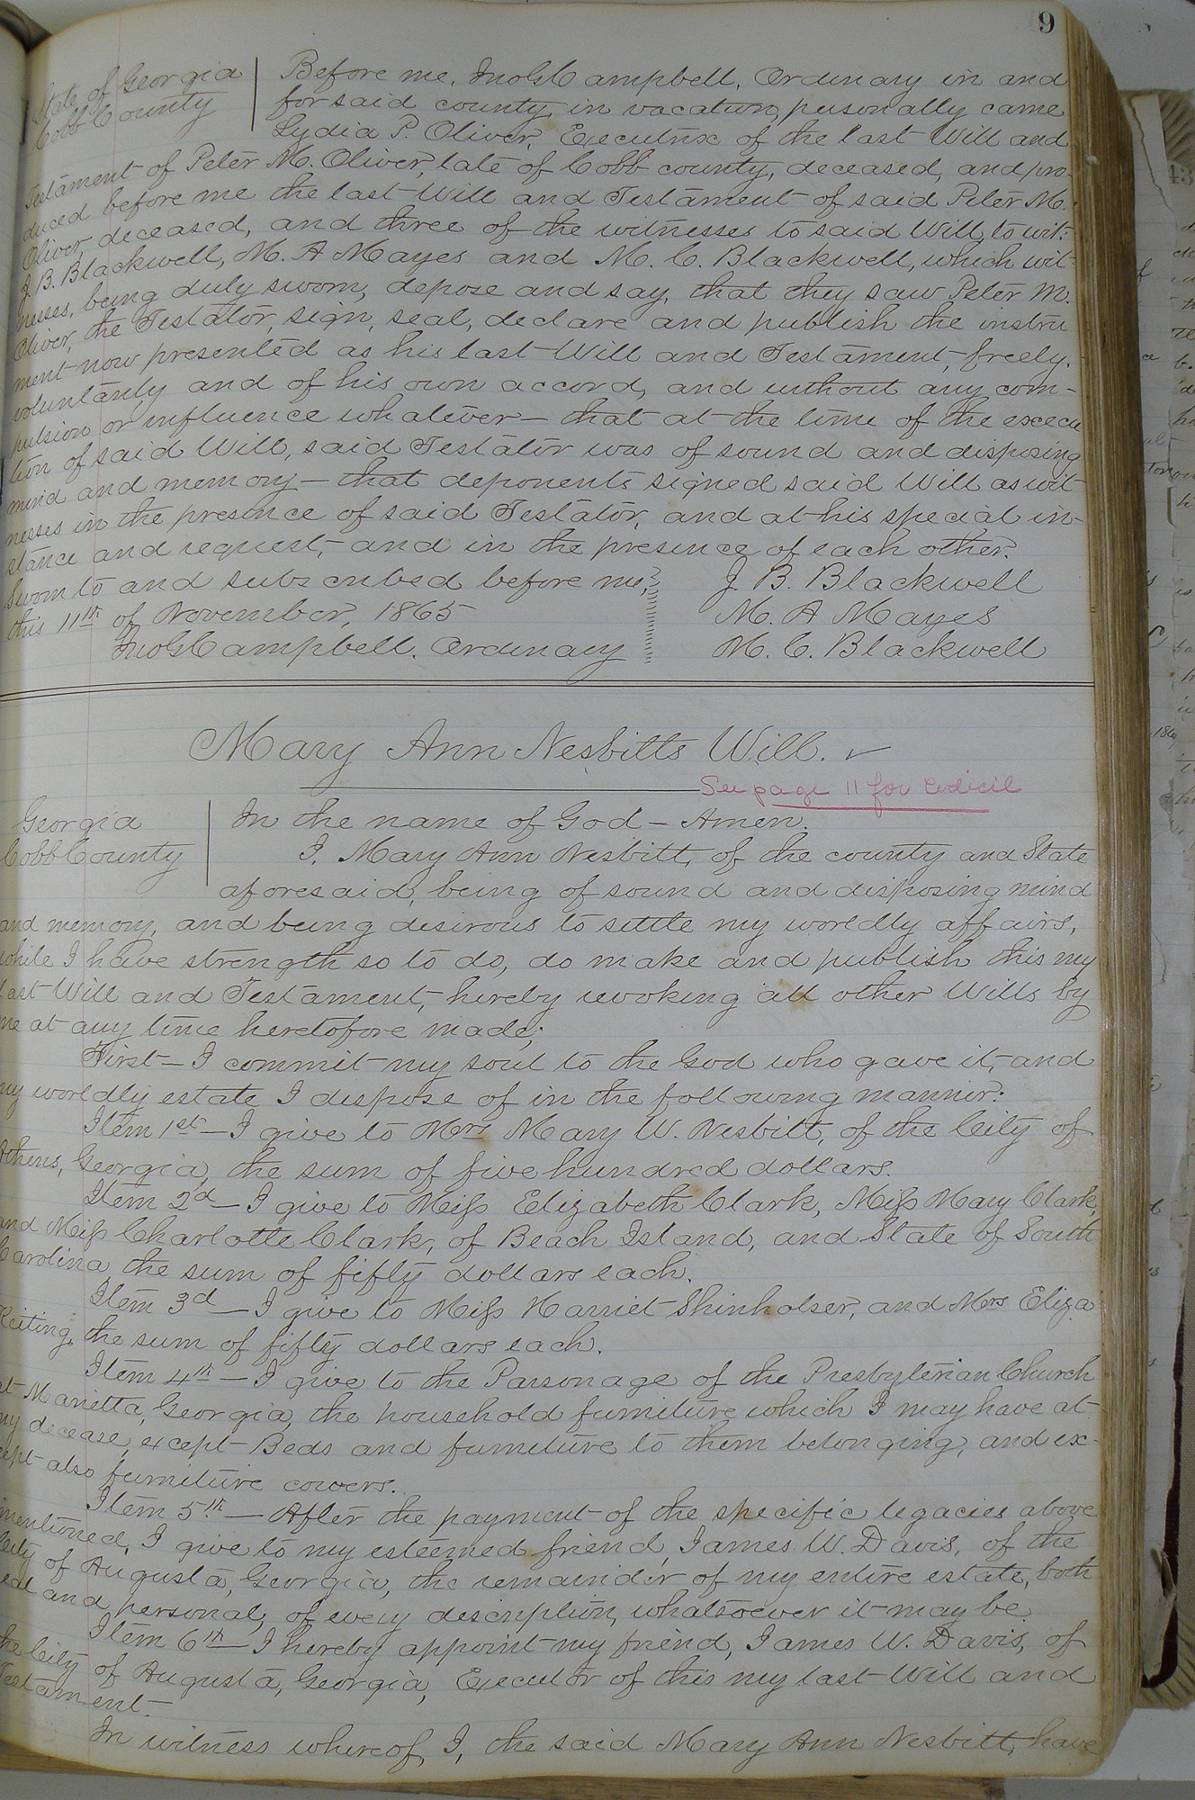 9
State of Georgia
Cobb County
Before me, Jno G Campbell, Ordinary in and
for said county, in vacation, personally came
Lydia P. Oliver, Executrix of the last Will and
Testament of Peter M. Oliver, late of Cobb county, deceased, and pro-
duced before me the last Will and Testament of said Peter M.
Oliver, deceased, and three of the witnesses to said Will, to wit:
J. B. Blackwell, M. A Mayes and M. C. Blackwell, which wit-
nesses, being duly sworn, depose and say, that they saw Peter M.
Oliver, the Testator, sign, seal, declare and publish the instru
ment now presented as his last Will and Testament, freely,
voluntarily and of his own accord, and without any com-
pulsion or influence whatever – that at the time of the execu
tion of said Will, said Testator was of sound and disposing
mind and memory – that deponents signed said Will as wit
nesses in the presence of said Testator, and at his special in-
stance and request, and in the presence of each other.
Sworn to and subscribed before me,
this 11th of November, 1865
Jno G Campbell. Ordinary
J B. Blackwell
M. A Mayes
M. C. Blackwell
Mary Ann Nesbitts Will. ✓
See page 11 for Codicil
Georgia
Cobb County
In the name of God – Amen.
I, Mary Ann Nesbitt, of the county and State
aforesaid, being of sound and disposing mind
and memory, and being desirous to settle my worldly affairs,
while I have strength so to do, do make and publish this my
last Will and Testament, hereby revoking all other Wills by
me at any time heretofore made;
First – I commit my soul to the God who gave it, and
my worldly estate I dispose of in the following manner:
Item 1st – I give to Mrs Mary W. Nesbitt, of the City of
Athens, Georgia, the sum of five hundred dollars.
Item 2d – I give to Miss Elizabeth Clark, Miss Mary Clark,
and Miss Charlotte Clark, of Beach Island, and State of South
Carolina, the sum of fifty dollars each.
Item 3d – I give to Miss Harriet Shinholser, and Mrs Eliza
the sum of fifty dollars each.
Item 4th – I give to the Parsonage of the Presbyterian Church
at Marietta, Georgia, the household furniture which I may have at
my decease, except Beds and furniture to them belonging, and ex-
cept also furniture covers.
Item 5th – After the payment of the specific legacies above
mentioned, I give to my esteemed friend, James W. Davis, of the
City of Augusta, Georgia, the remainder of my entire estate, both
real and personal, of every description, whatsoever it may be.
Item 6th – I hereby appoint my friend, James W. Davis, of
the City of Augusta, Georgia, Executor of this my last Will and
Testament.
In witness whereof, I, the said Mary Ann Nesbitt, have